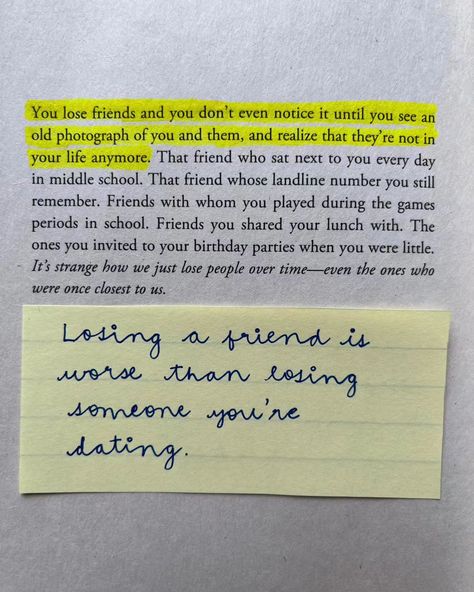 You lose friends and you don't even notice it until you see an
old photograph of you and them, and realize that they're not in
your life anymore. That friend who sat next to you every day
in middle school. That friend whose landline number you still
remember. Friends with whom you played during the games
periods in school. Friends you shared your lunch with. The
ones you invited to your birthday parties when you were little.
It's strange how we just lose people over time—even the ones who
were once closest to us.
Losing a friend is
worse than losing
someone you're
dating.